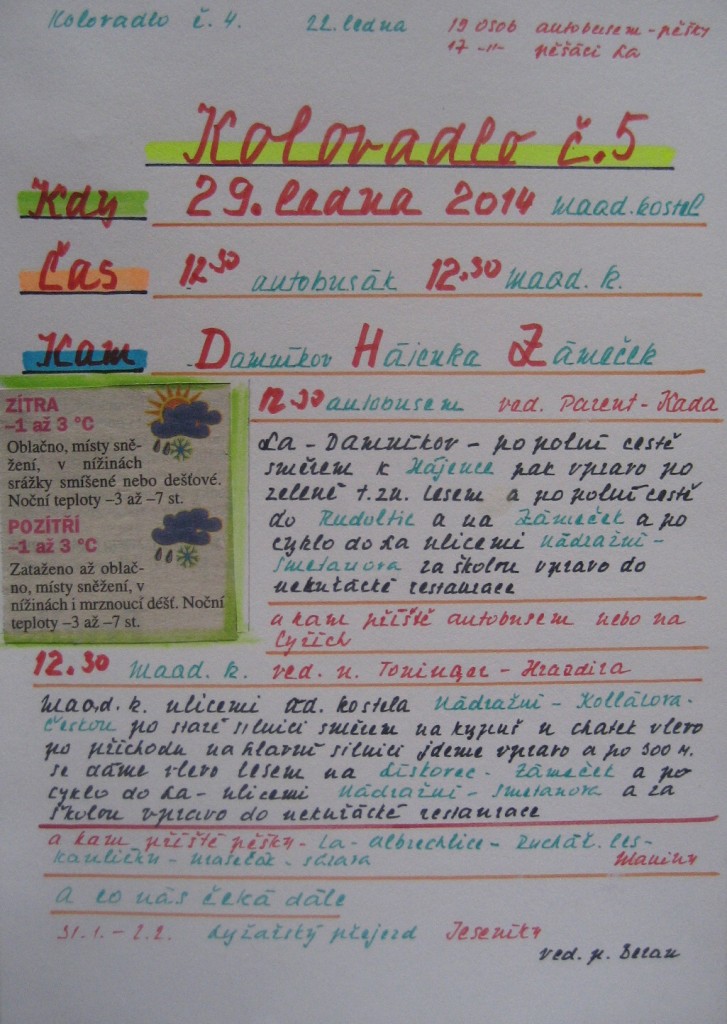 Koloradlo č. 4. 22. ledna 19 osob autobusem - pěšky
17 -"- pěšáci La
Koloradlo č. 5
Kdy 29. ledna 2014 Maad. kostel
Čas 12 30 autobusák 12.30 Maad. k.
Kam Damníkov Hájenka Zámeček
ZÍTRA
–1 až 3 °C
Oblačno, místy sně-
žení, v nížinách
srážky smíšené nebo dešťové.
Noční teploty –3 až –7 st.
POZÍTŘÍ
–1 až 3 °C
Zataženo až oblač-
no, místy sněžení, v
nížinách i mrznoucí déšť. Noční
teploty –3 až –7 st.
12 30 autobusem ved. Parent - Kada
La - Damníkov - po polní cestě
směrem k Hájence pak vpravo po
zelené t. zn. lesem a po polní cestě
do Rudoltic a na Zámeček a po
cyklo do La ulicemi Nádražní -
Smetanova za školou vpravo do
nekuřácké restaurace
a kam příště autobusem nebo na
lyžích
12.30 Maad. k. ved. Toninger - Hrazdira
Maad. k. ulicemi od kostela Nádražní - Kollárova -
Českou po staré silnici směrem na u chatek vlevo
po příchodu na hlavní silnici jdeme vpravo a po 300 m.
se dáme vlevo lesem na Liškovec - Zámeček a po
cyklo do La - ulicemi Nádražní - Smetanova a za
školou vpravo do nekuřácké restaurace
a kam příště pěšky - La - Albrechtice - les -
A co nás čeká dále
31.1. - 2.2. Lyžařský přejezd Jeseníky
ved. p. Beran